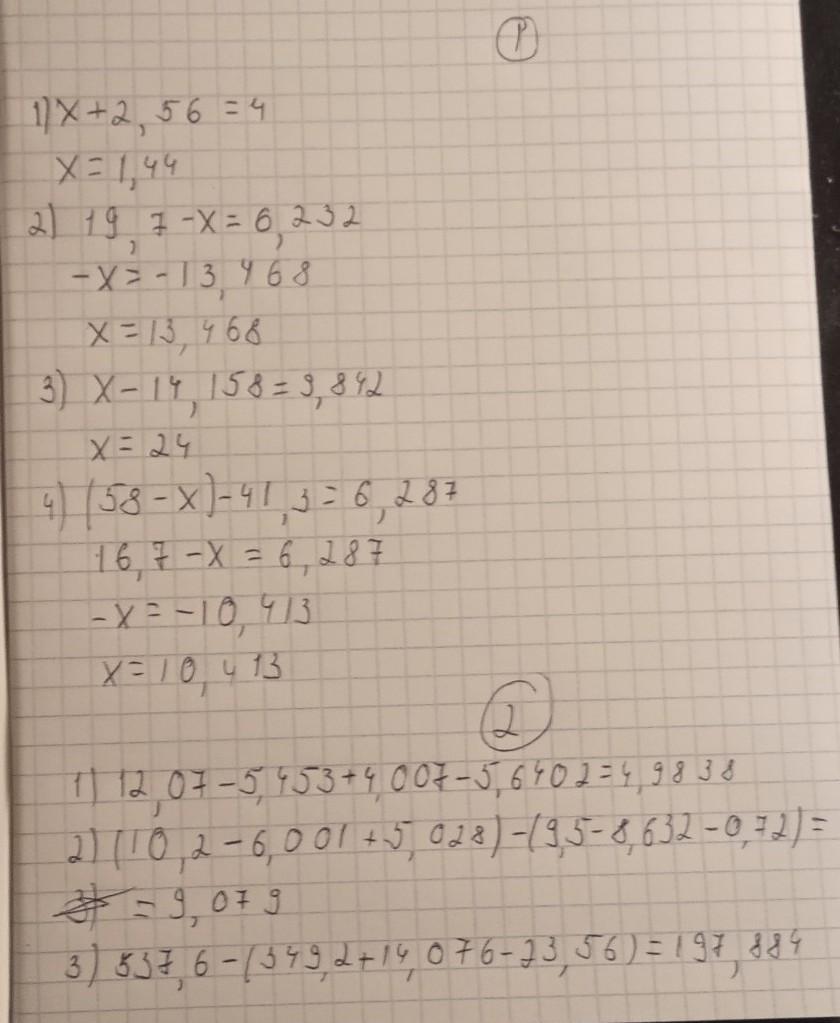 1
1) x + 2,56 = 4
x = 1,44
2) 19,7 - x = 6,232
-x = -13,468
x = 13,468
3) x - 14,158 = 9,842
x = 24
4) (58 - x) - 41,3 = 6,287
16,7 - x = 6,287
-x = -10,413
x = 10,413
2
1) 12,07 - 5,453 + 4,007 - 5,6402 = 4,9838
2) (10,2 - 6,001 + 5,028) - (9,5 - 8,632 - 0,72) =
= 9,079
3) 537,6 - (349,2 + 14,076 - 23,56) = 197,884